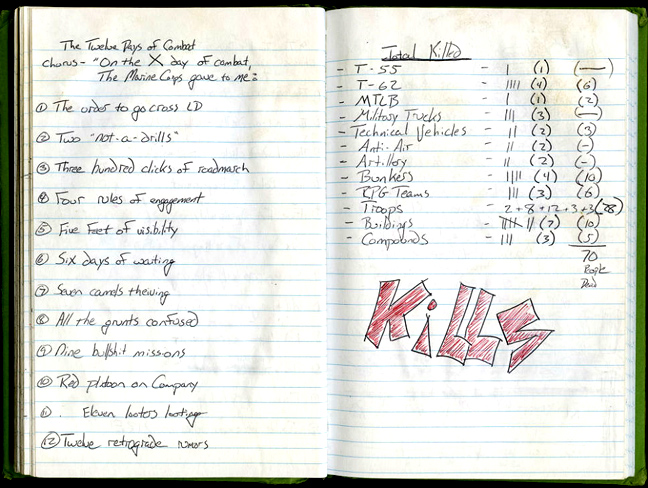 The Twelve Days of Combat
Chorus - "On the X day of combat,
The Marine Corps gave to me:
① The order to go cross LD
② Two "not-a-drills"
③ Three hundred clicks of roadmarch
④ Four rules of engagement
⑤ Five Feet of visibility
⑥ Six days of waiting
⑦ Seven camels theiving
⑧ All the grunts confused
⑨ Nine bullshit missions
⑩ Red platoon on Company
⑪ . Eleven looters looting
⑫ Twelve retrograde rumors
Total Killed
- T-55 - I (1) (—)
- T-62 - IIII (4) (6)
- MTLB - I (1) (2)
- Military Trucks - III (3) (—)
- Technical Vehicles - II (2) (3)
- Anti-Air - II (2) (-)
- Artillery - II (2) (-)
- Bunkers - IIII (4) (10)
- RPG Teams - III (3) (6)
- Troops - 2+8+12+3+3 (28)
- Buildings - IIII II (7) (10)
- Compounds - III (3) (5)
70
People
Dead
Kills